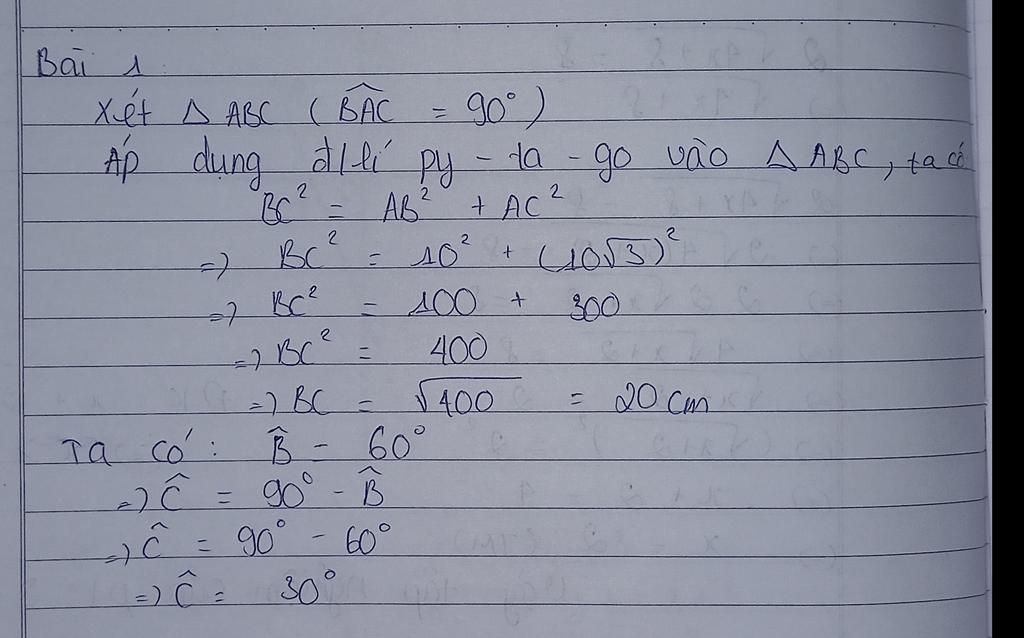 Bài 1
Xét △ ABC ( \widehat{BAC} = 90° )
Áp dụng đ/lí py - ta - go vào △ ABC, ta có
BC² = AB² + AC²
=> BC² = 10² + (10√3)²
=> BC² = 100 + 300
=> BC² = 400
=> BC = √400 = 20 cm
Ta có: B̂ = 60°
=> Ĉ = 90° - B̂
=> Ĉ = 90° - 60°
=> Ĉ = 30°